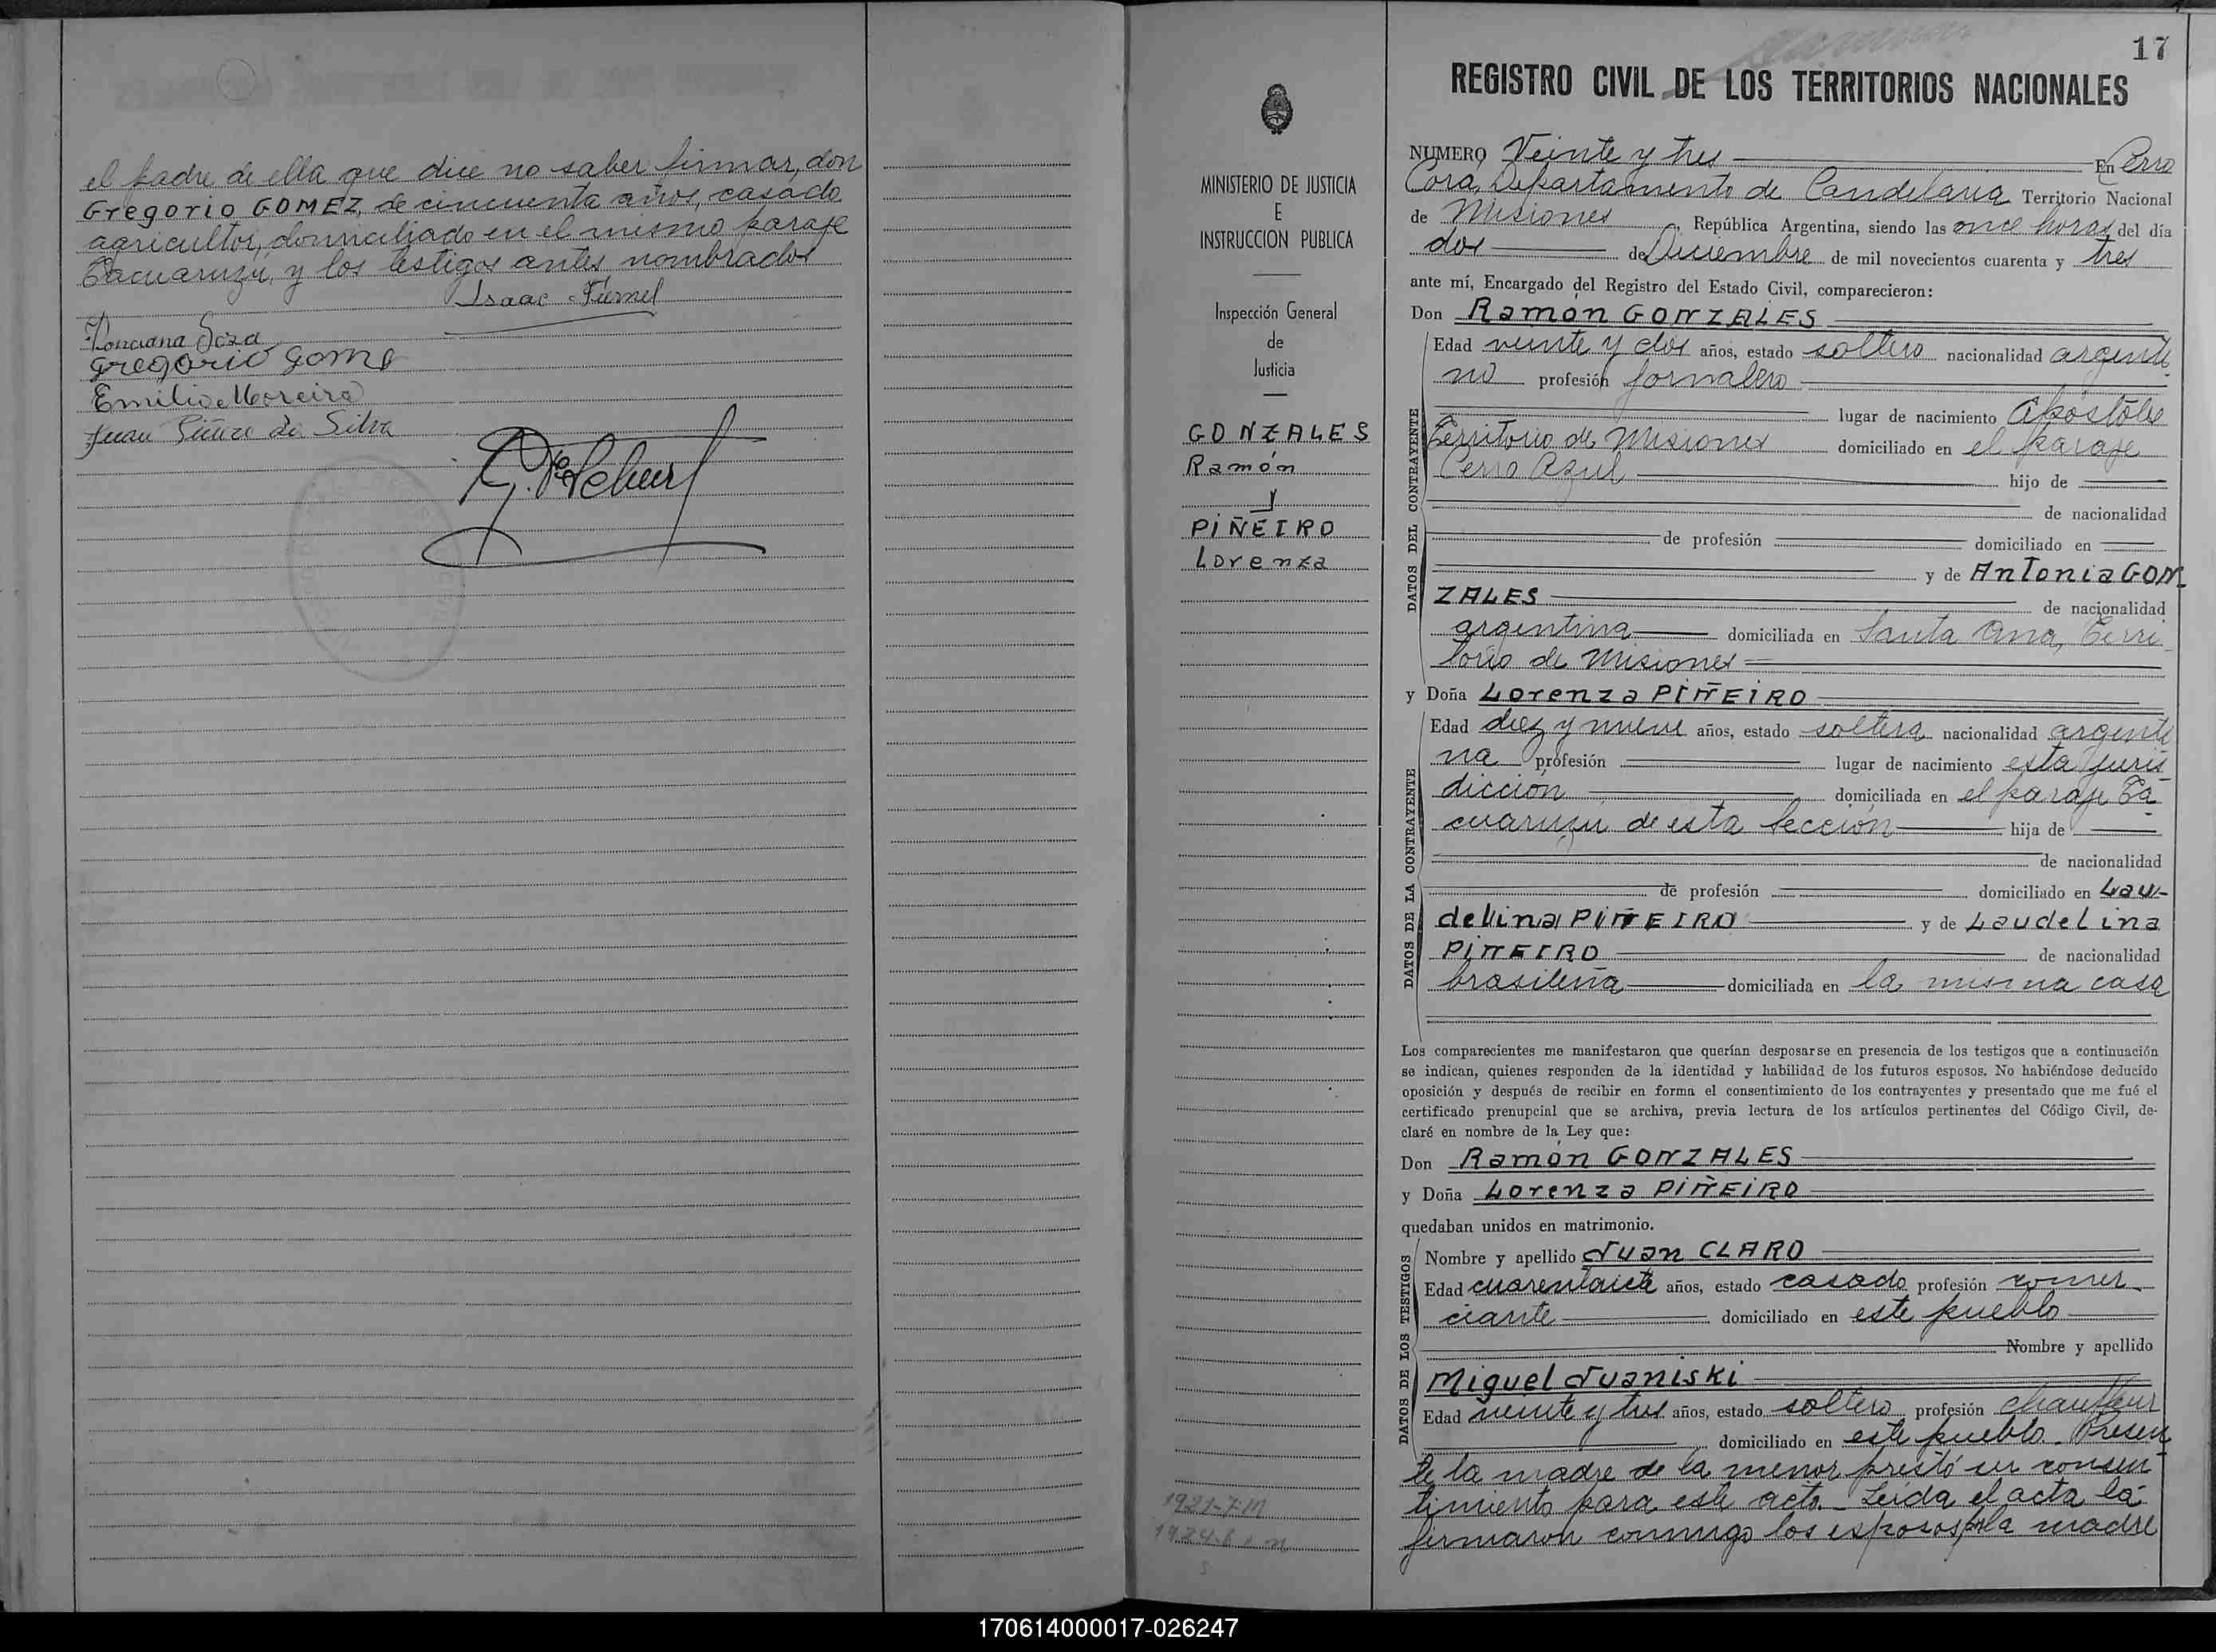 el padre de ella que dice no saber firmar, don
Gregorio GOMEZ, de cincuenta años, casado
agricultor, domiciliado en el mismo paraje
Tacuaruzú, y los testigos antes nombrados
Isaac
Gregorio Gome
Emilio Moreira
Juan de Silva
17
REGISTRO CIVIL DE LOS TERRITORIOS NACIONALES
MINISTERIO DE JUSTICIA
E
INSTRUCCION PUBLICA
Inspección General
de
Justicia
GONZALES
Ramón
y
PIÑEIRO
Lorenza
NUMERO Veinte y tres En Cerro
Corá, Departamento de Candelaria Territorio Nacional
de Misiones República Argentina, siendo las once horas del día
dos de Diciembre de mil novecientos cuarenta y tres
ante mí, Encargado del Registro del Estado Civil, comparecieron:
Don Ramón GONZALES
DATOS DEL CONTRAYENTE
Edad veinte y dos años, estado soltero nacionalidad argenti
no profesión jornalero
lugar de nacimiento Apóstoles
Territorio de Misiones domiciliado en el paraje
Cerro Azul hijo de
de nacionalidad
de profesión domiciliado en
y de Antonia GON
ZALES de nacionalidad
argentina domiciliada en Santa Ana, Terri
torio de Misiones
y Doña Lorenza PIÑEIRO
DATOS DE LA CONTRAYENTE
Edad diez y nueve años, estado soltera nacionalidad argenti
na profesión lugar de nacimiento esta juris
dicción domiciliada en el paraje Ta
cuaruzú de esta Sección hija de
de nacionalidad
de profesión domiciliado en Lau-
delina PIÑEIRO y de Laudelina
PIÑEIRO de nacionalidad
brasileña domiciliada en la misma casa
Los comparecientes me manifestaron que querían desposarse en presencia de los testigos que a continuación
se indican, quienes responden de la identidad y habilidad de los futuros esposos. No habiéndose deducido
oposición y después de recibir en forma el consentimiento de los contrayentes y presentado que me fué el
certificado prenupcial que se archiva, previa lectura de los artículos pertinentes del Código Civil, de-
claré en nombre de la Ley que:
Don Ramón GONZALES
y Doña Lorenza PIÑEIRO
quedaban unidos en matrimonio.
DATOS DE LOS TESTIGOS
Nombre y apellido Juan CLARO
Edad años, estado casado profesión comer
ciante domiciliado en este pueblo
Nombre y apellido
Miguel Juaniski
Edad veinte y tres años, estado soltero profesión chauffeur
domiciliado en este pueblo. Presen
te la madre de la menor prestó su consen
timiento para este acto. Leída el acta la
firmaron conmigo los esposos, por la madre
170614000017-026247